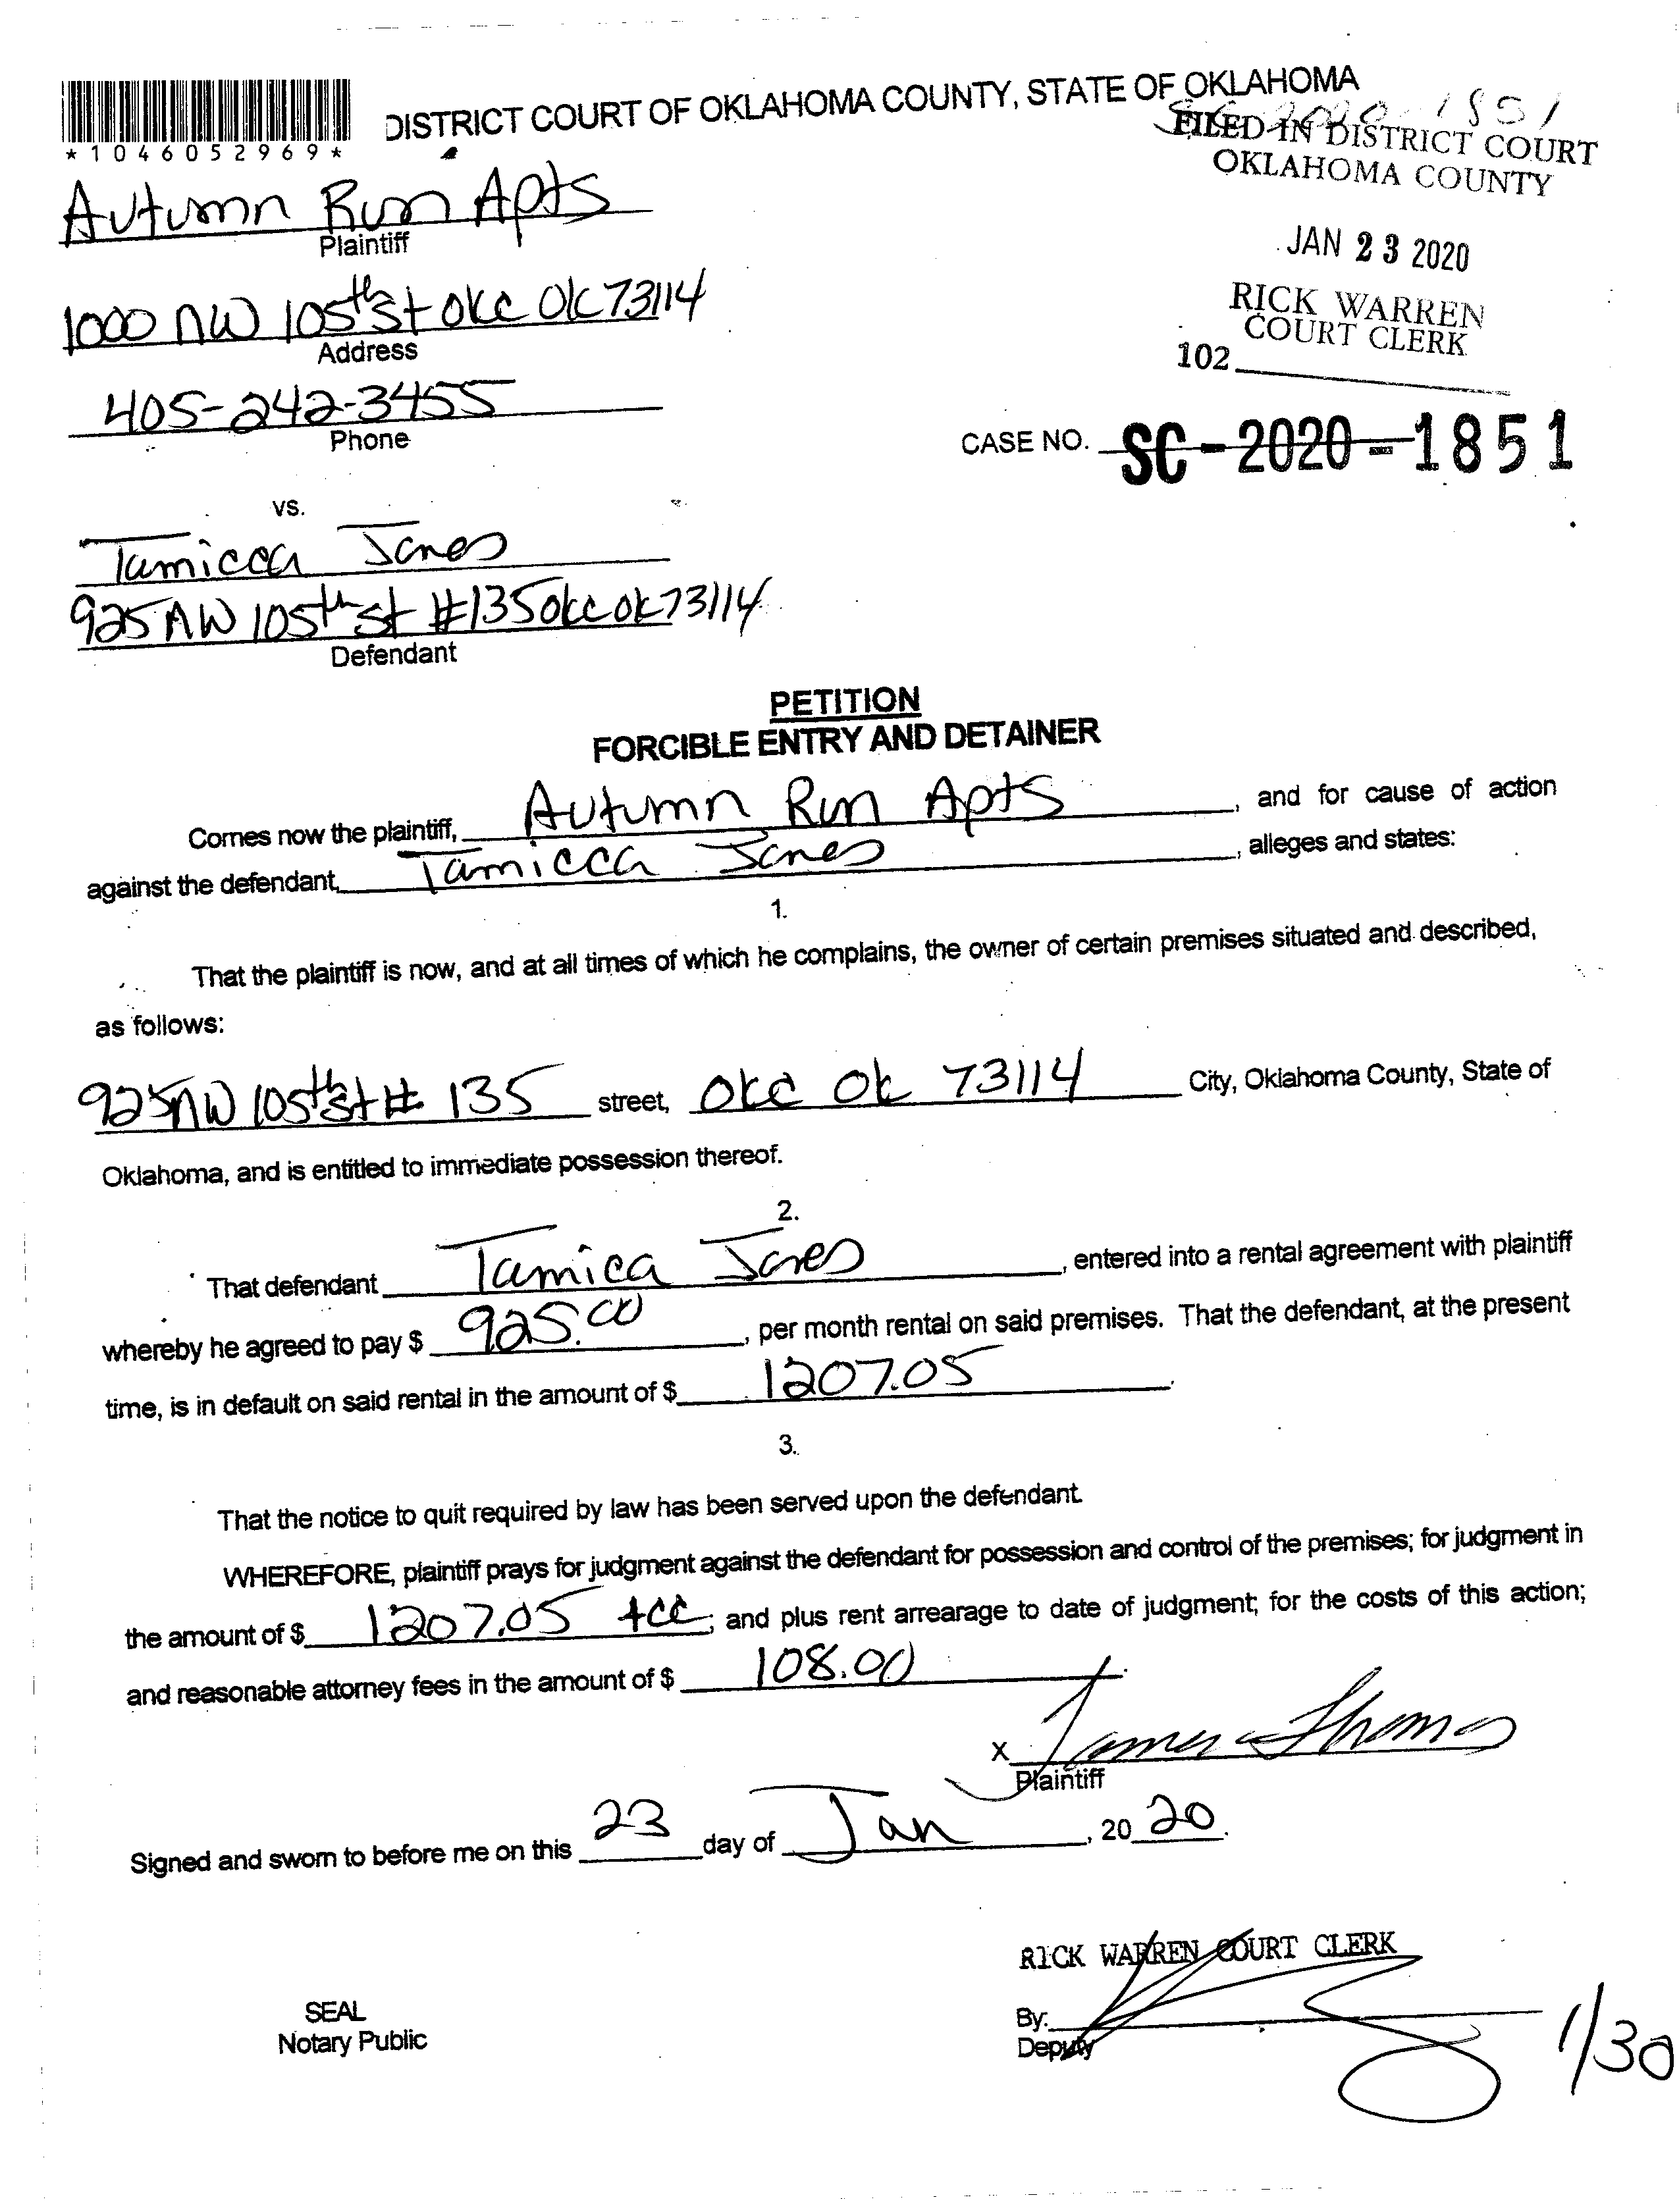 *1046052969*
DISTRICT COURT OF OKLAHOMA COUNTY, STATE OF OKLAHOMA
SC-2020-1851
FILED IN DISTRICT COURT
OKLAHOMA COUNTY
JAN 23 2020
RICK WARREN
COURT CLERK
102
Autumn Run Apts
Plaintiff
1000 NW 105th St OKC OK 73114
Address
405-242-3455
Phone
CASE NO. SC-2020-1851
vs.
Tamicca Jones
925 NW 105th St #135 OKC OK 73114
Defendant
PETITION
FORCIBLE ENTRY AND DETAINER
Comes now the plaintiff, Autumn Run Apts, and for cause of action
against the defendant, Tamicca Jones, alleges and states:
1.
That the plaintiff is now, and at all times of which he complains, the owner of certain premises situated and described,
as follows:
925 NW 105th St # 135 street, OKC OK 73114 City, Oklahoma County, State of
Oklahoma, and is entitled to immediate possession thereof.
2.
That defendant Tamica Jones, entered into a rental agreement with plaintiff
whereby he agreed to pay $ 925.00, per month rental on said premises. That the defendant, at the present
time, is in default on said rental in the amount of $ 1207.05.
3.
That the notice to quit required by law has been served upon the defendant.
WHEREFORE, plaintiff prays for judgment against the defendant for possession and control of the premises; for judgment in
the amount of $ 1207.05 +CC; and plus rent arrearage to date of judgment; for the costs of this action;
and reasonable attorney fees in the amount of $ 108.00.
X
Plaintiff
Signed and sworn to before me on this 23 day of Jan, 2020.
RICK WARREN COURT CLERK
SEAL
Notary Public
By:
Deputy
1/30